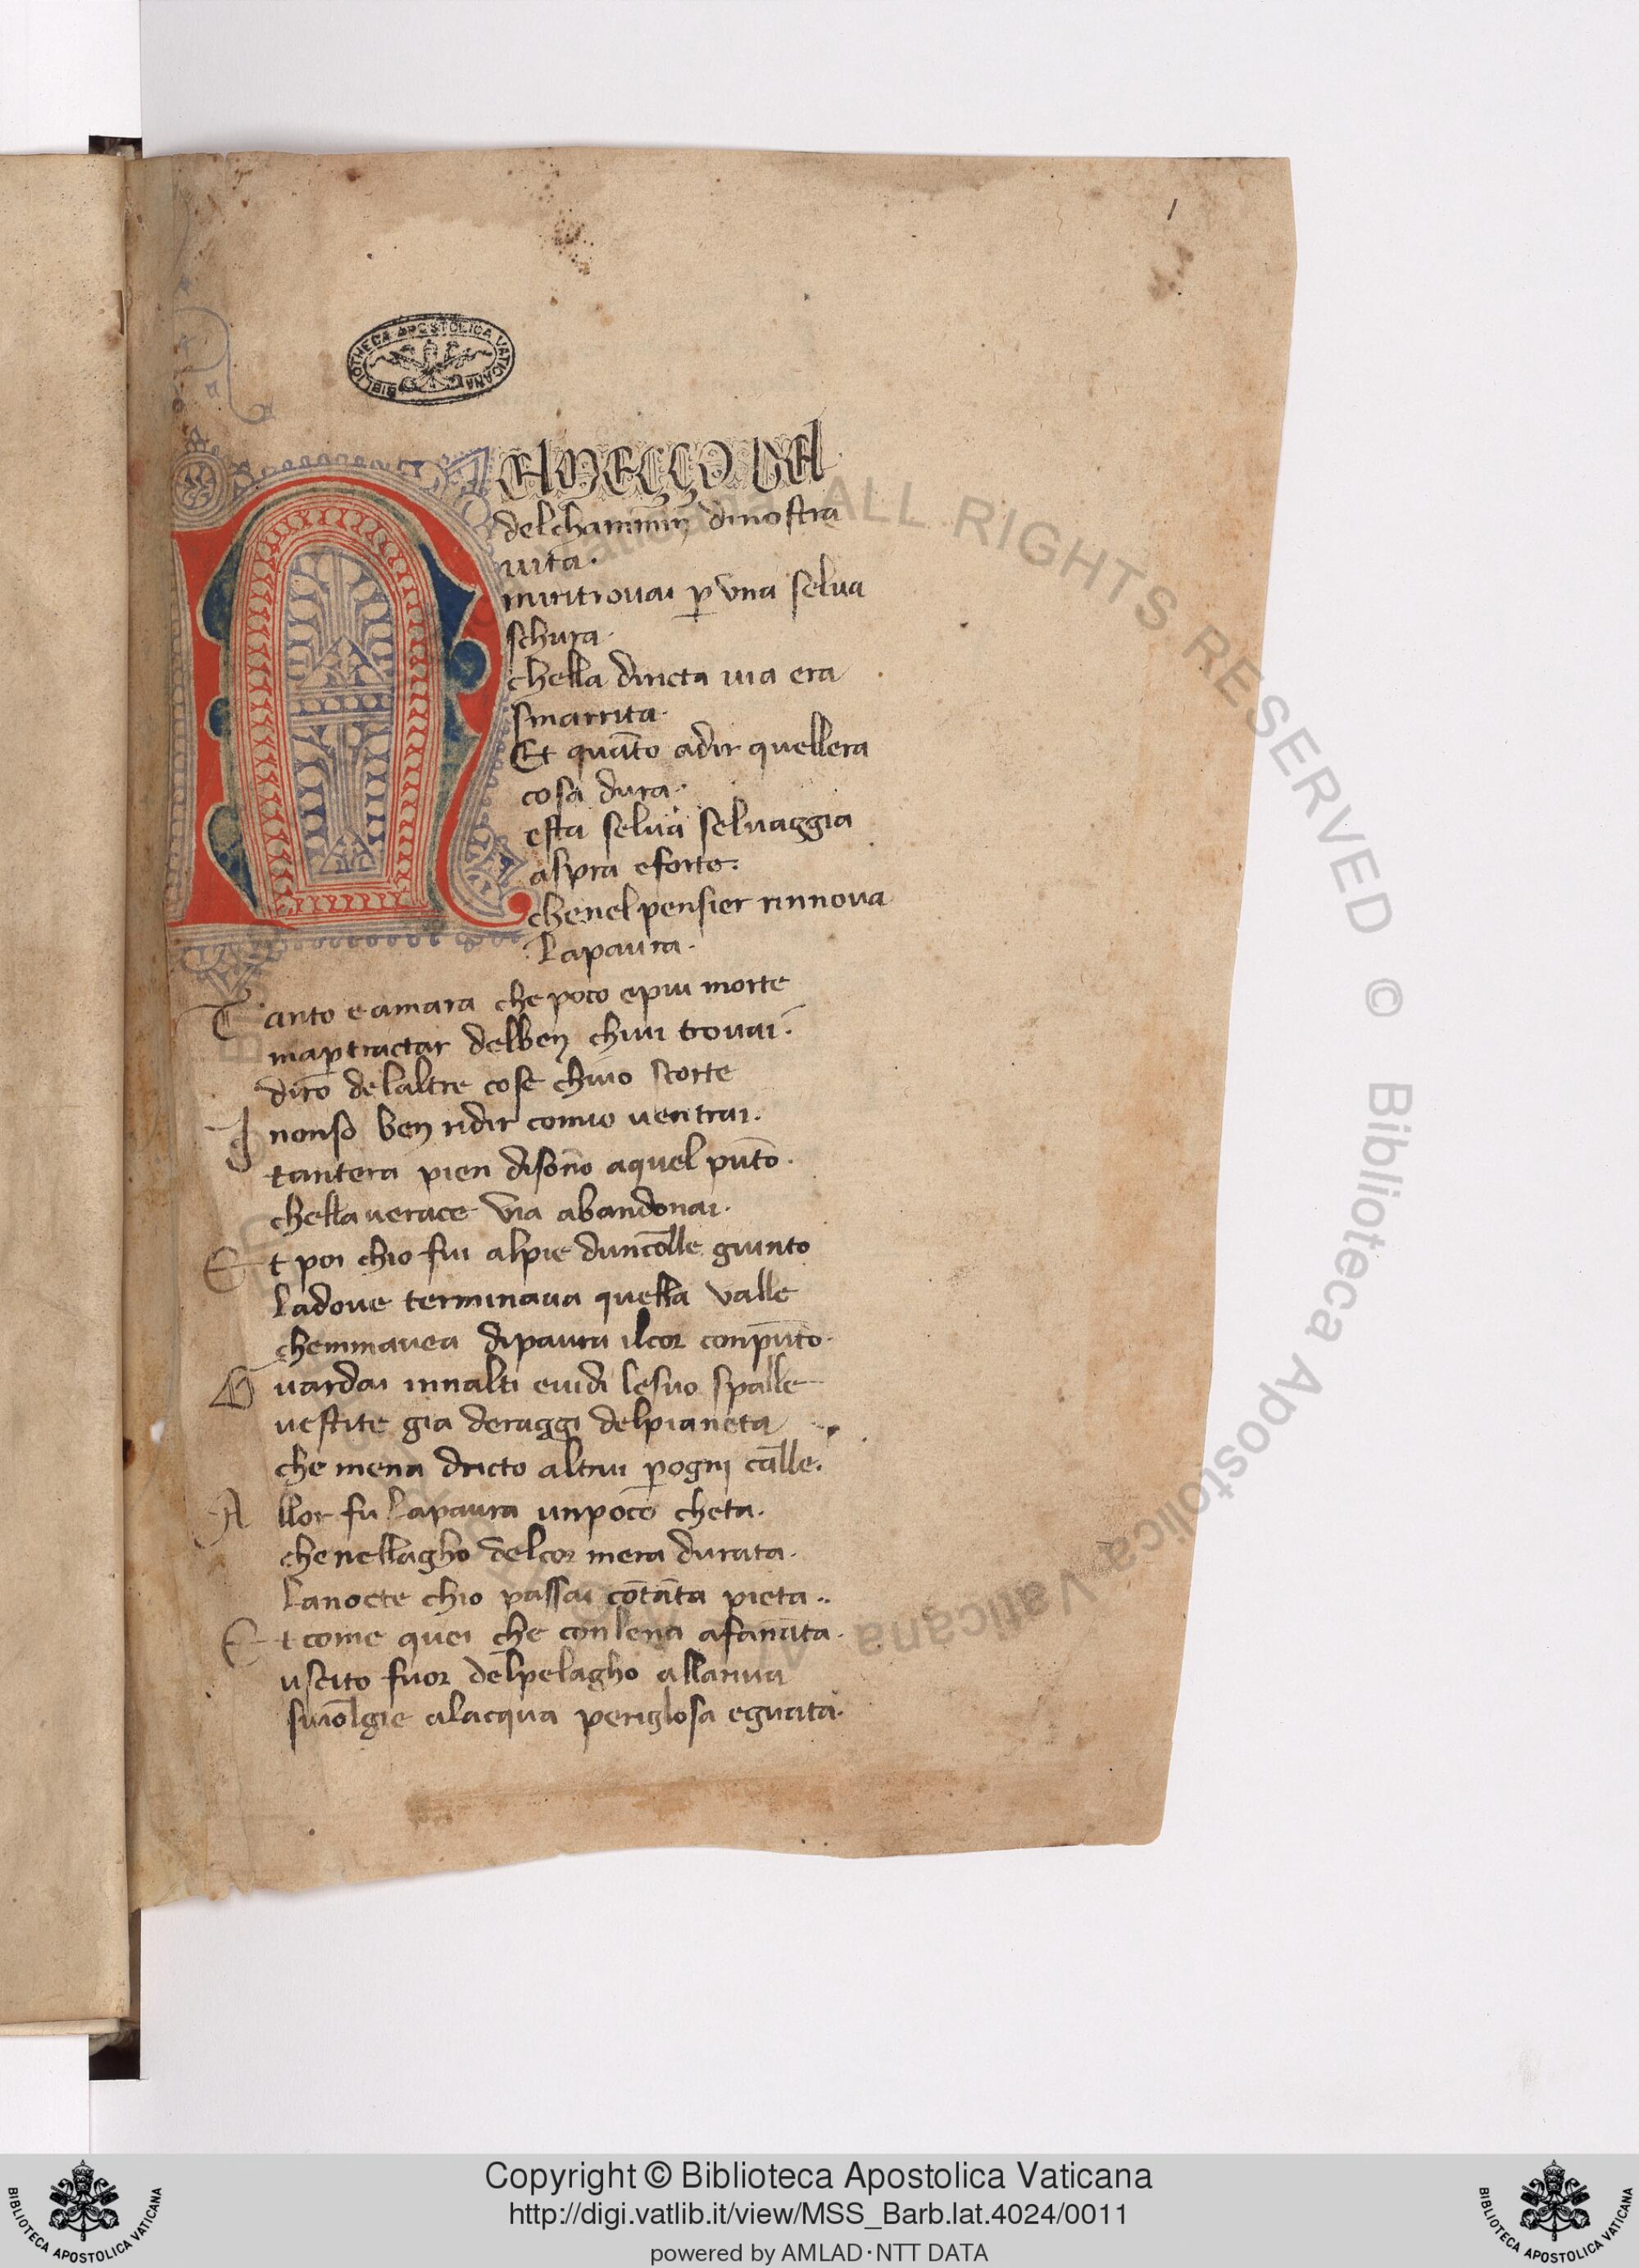 1
BIBLIOTHECA APOSTOLICA VATICANA
NEL MEÇÇO DEL
del chammin di nostra
uita.
mi ritrouai p̱ una selua
schura.
chella diricta uia era
smarrita.
Et quāto adir quellera
cosa dura.
esta selua seluaggia
aspra eforte.
chenel pensier rinnoua
lapaura.
Tanto e amara che poco epiu morte
map̱ tractar delben chiui trouai.
diro delaltre cose chiuo scorte
I nonso ben ridir comio uentrai.
tantera pien disōno aquel pūto.
chella uerace uia abandonai.
Et poi chio fui alpie duncolle giunto
ladoue terminaua quella ualle
chemmauea dipaura ilcor conpūto.
Guardai innalti euidi lesuo spalle
uestite gia deraggi delpianeta
che mena dricto altrui p̱ogni calle.
Allor fu lapaura unpoco cheta.
che nellagho delcor mera durata.
lanocte chio passai cōtāta pieta..
Et come quei che con lena afannata.
uscito fuor delpelagho allariua
siuolgie alacqua periglosa eguata.
© Biblioteca Apostolica Vaticana ALL RIGHTS RESERVED © Biblioteca Apostolica Vaticana
Copyright © Biblioteca Apostolica Vaticana
http://digi.vatlib.it/view/MSS_Barb.lat.4024/0011
powered by AMLAD·NTT DATA
BIBLIOTECA APOSTOLICA VATICANA
BIBLIOTECA APOSTOLICA VATICANA